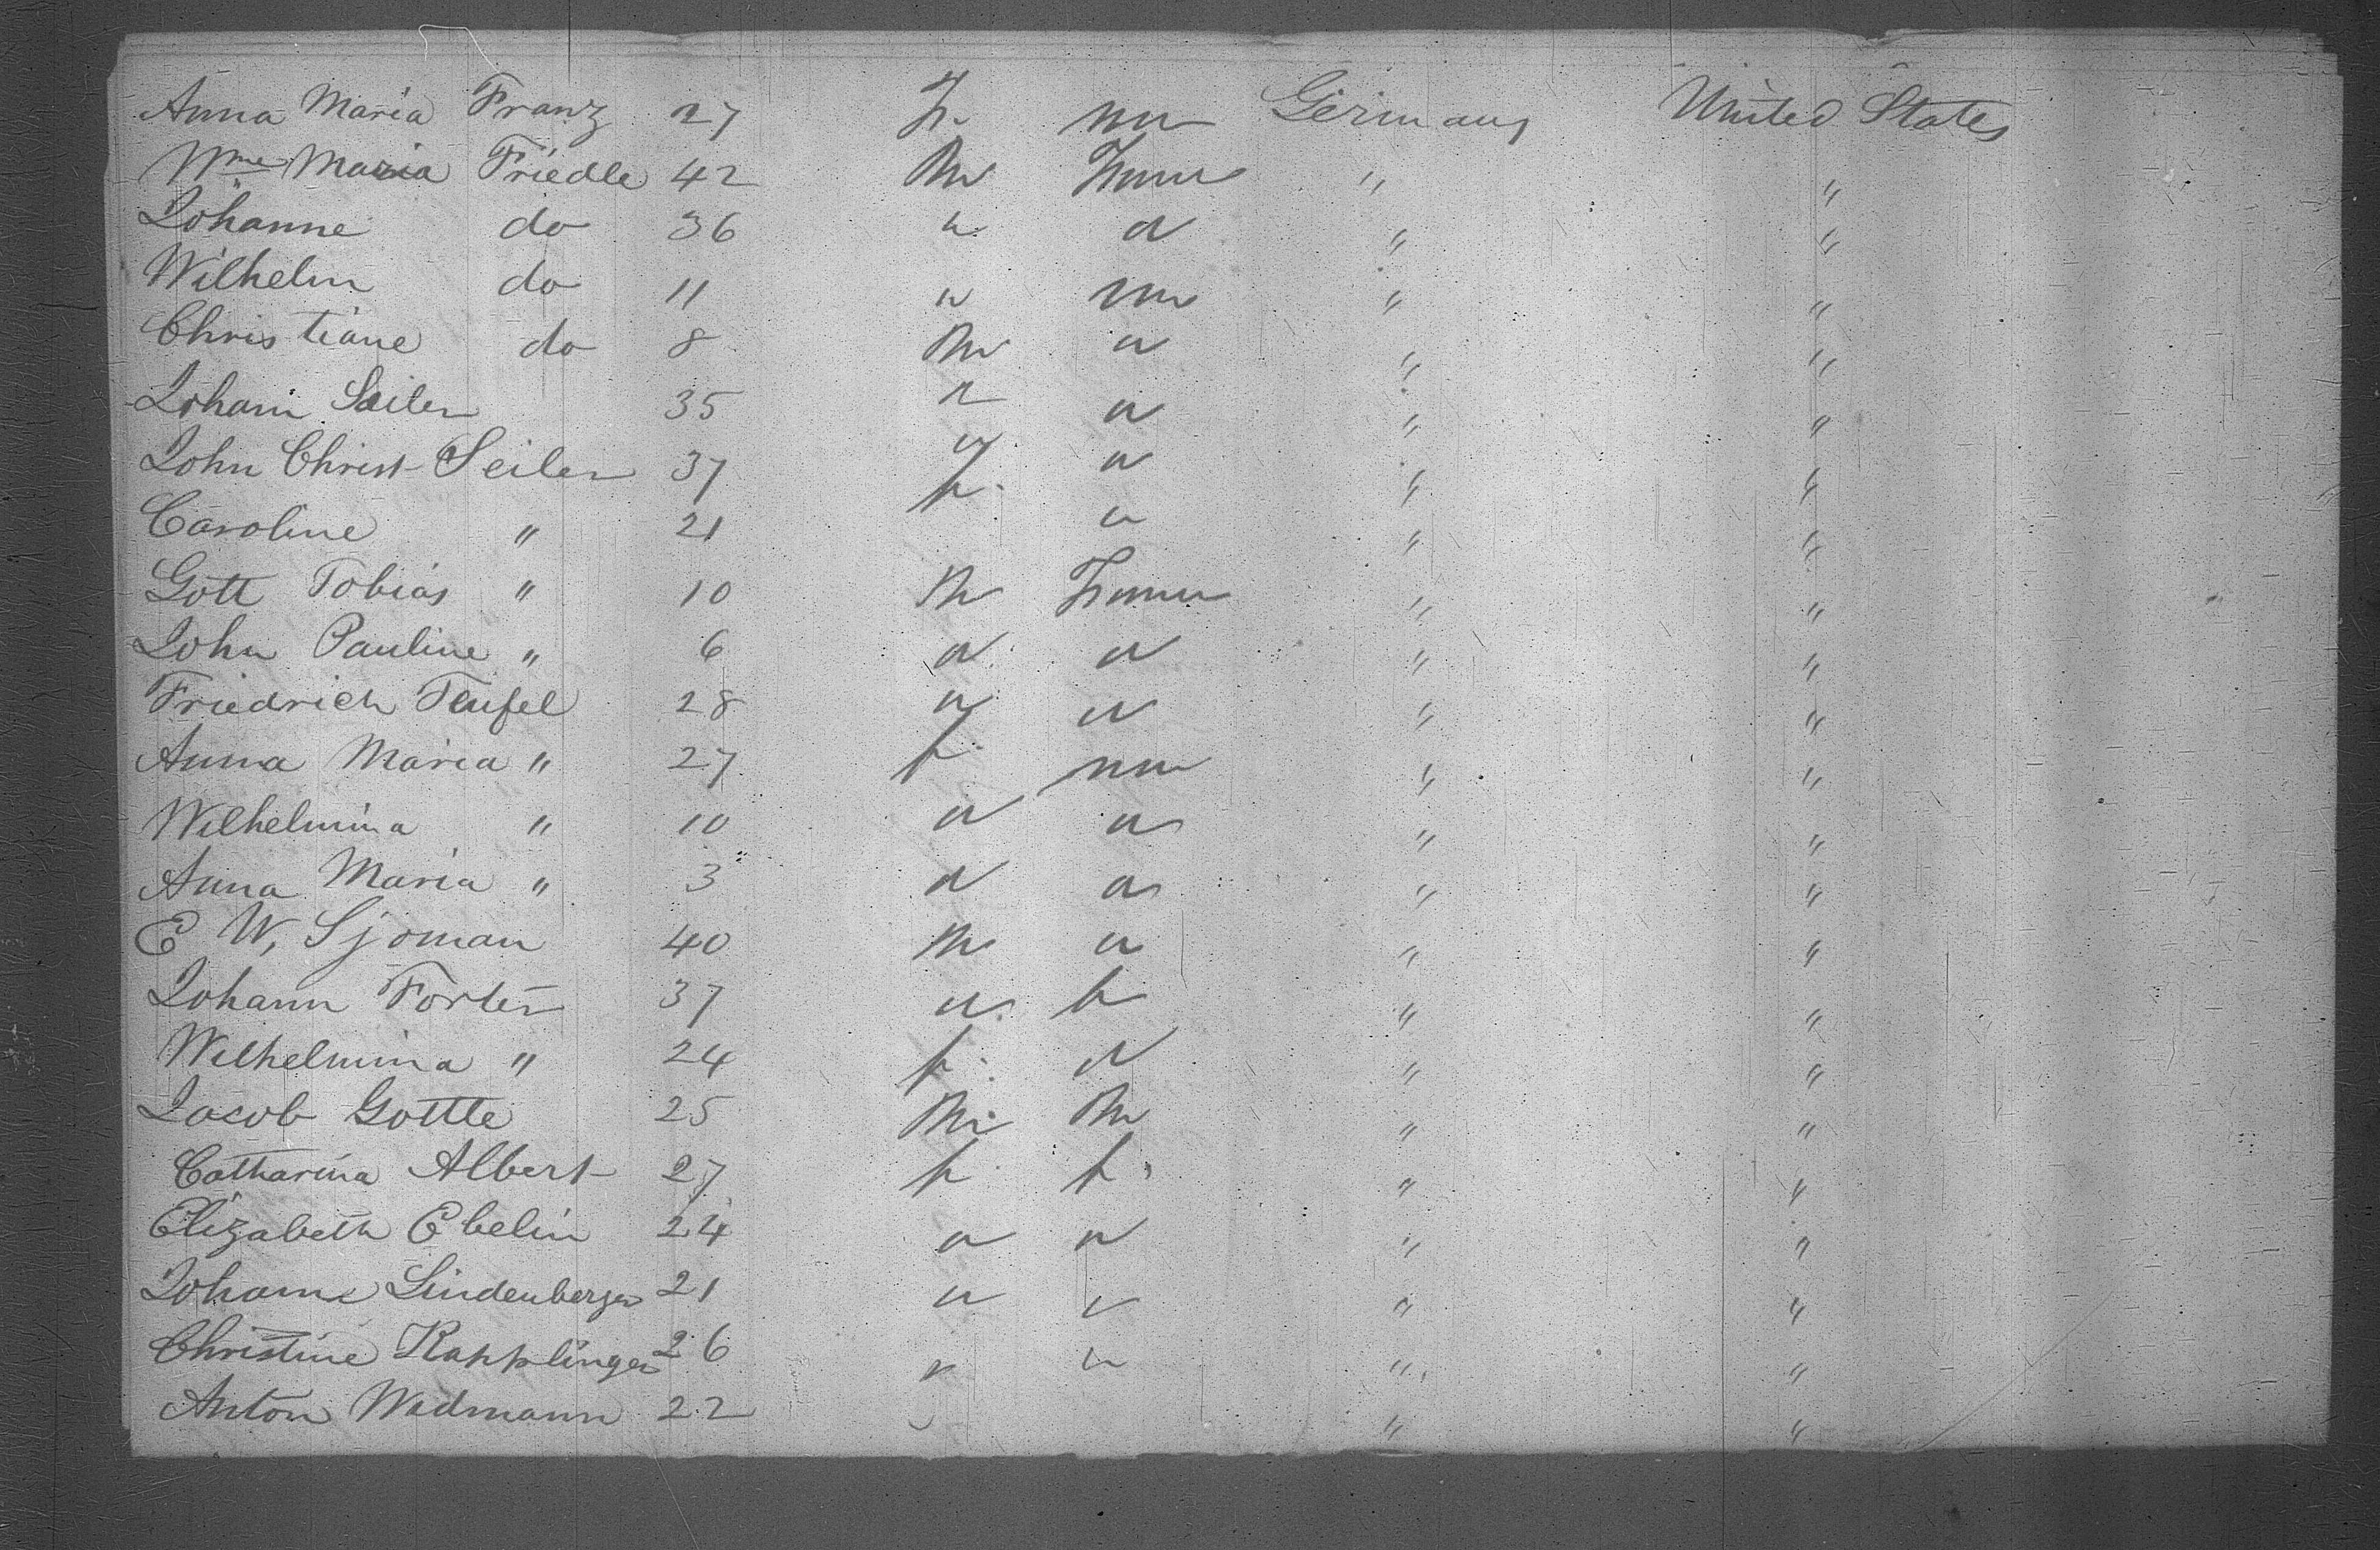 Anna Maria Franz 27 F. Germany United States
Wme Maria Friedle 42 M Farmer " "
Johanne do 36 " " " "
Wilhelm do 11 " " "
Christiane do 8 M " " "
Johann Seiler 35 " " " "
John Christ Seiler 37 " " " "
Caroline " 21 f. " " "
Gott Tobias " 10 M Farmer " "
John Pauline " 6 " " " "
Friedrich Teufel 28 " " " "
Anna Maria " 27 f. " "
Wilhelmina " 10 " " " "
Anna Maria " 3 " " " "
E W, Sjoman 40 M " " "
Johann Forter 37 " " "
Wilhelmina " 24 f. " " "
Jacob Gottle 25 M " "
Catharina Albert 27 f " "
Elizabeth Ebelin 24 " " " "
Johanne Lindenberger 21 " " " "
Christine Kapplinger 26 " " " "
Anton Wadmann 22 " " "